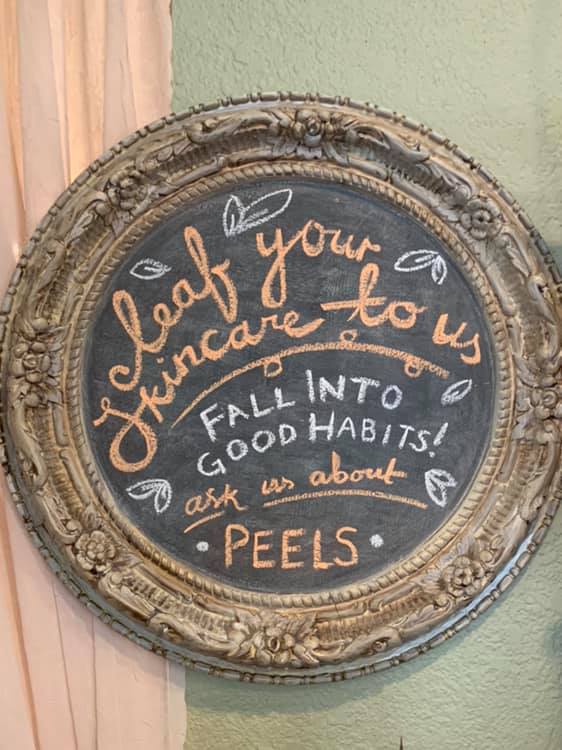 leaf your
skincare to us
FALL INTO
GOOD HABITS!
ask us about
PEELS